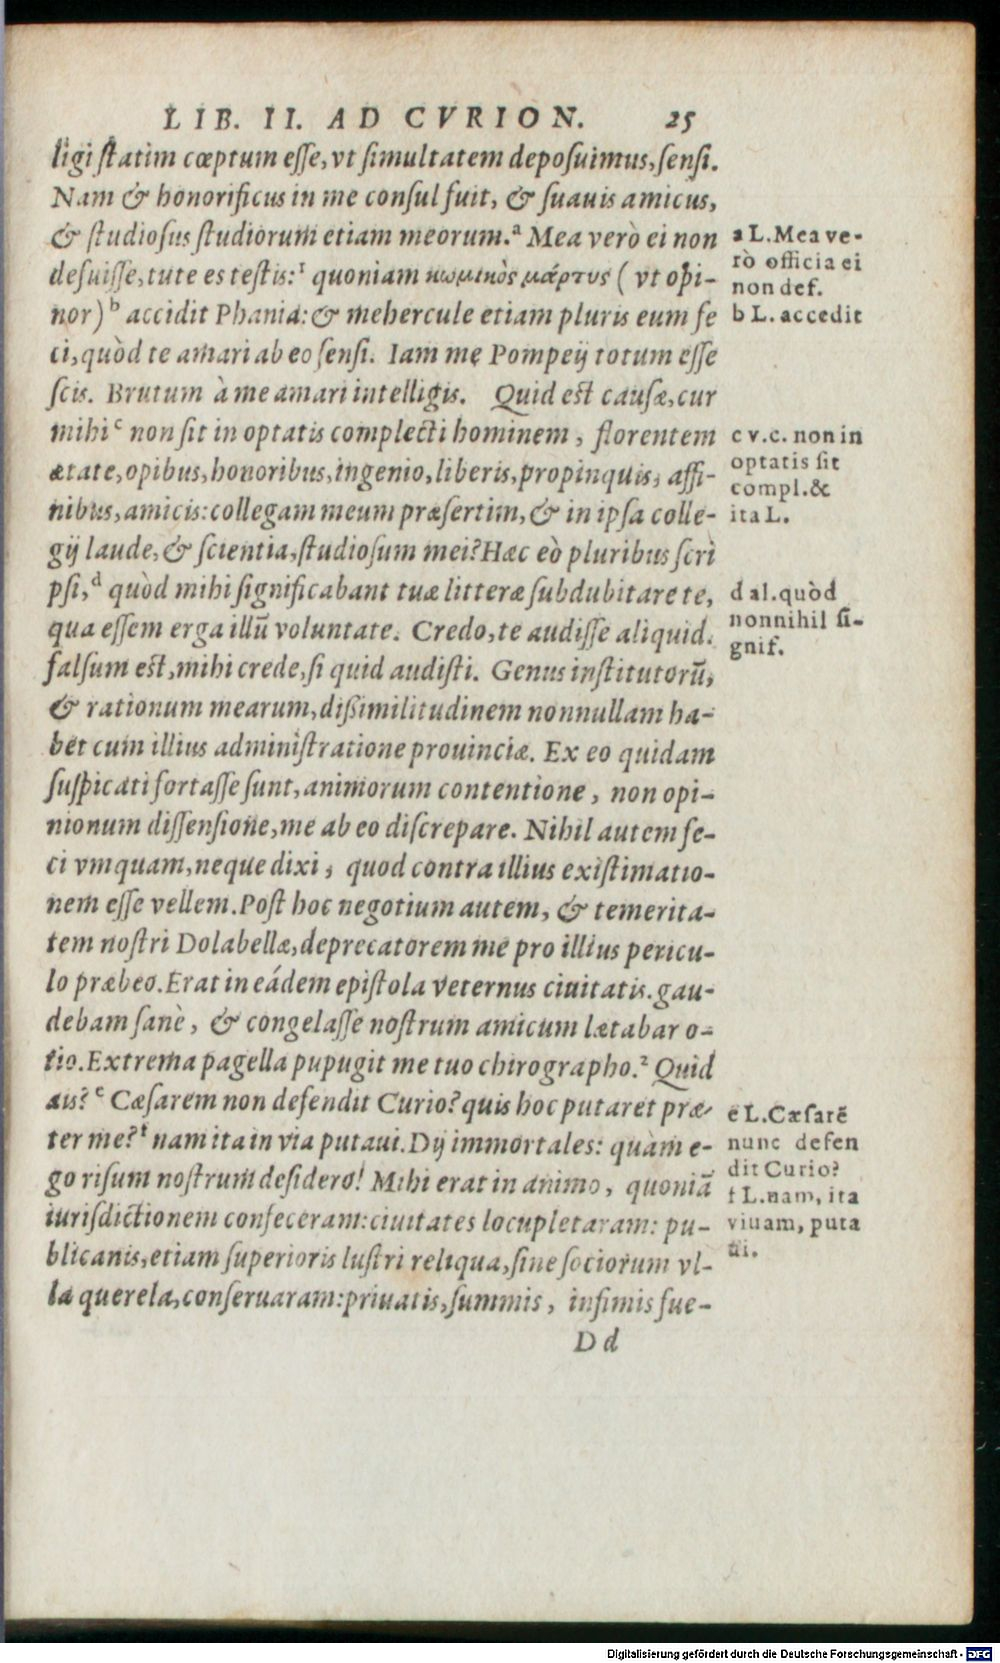 LIB. II. AD CVRION. 25
ligi statim cœptum esse, vt simultatem deposuimus, sensi.
Nam & honorificus in me consul fuit, & suauis amicus,
& studiosus studiorum etiam meorum.ᵃ Mea verò ei non
defuisse, tute es testis:¹ quoniam κωμικὸς μάρτυς (vt opi-
nor)ᵇ accidit Phania: & mehercule etiam pluris eum fe
ci, quòd te amari ab eo sensi. Iam me Pompeij totum esse
scis. Brutum à me amari intelligis. Quid est causæ, cur
mihiᶜ non sit in optatis complecti hominem, florentem
ætate, opibus, honoribus, ingenio, liberis, propinquis, affi-
nibus, amicis: collegam meum præsertim, & in ipsa colle-
gij laude, & scientia, studiosum mei? Hæc eò pluribus scri
psi,ᵈ quòd mihi significabant tuæ litteræ subdubitare te,
qua essem erga illū voluntate. Credo, te audisse aliquid.
falsum est, mihi crede, si quid audisti. Genus institutorū,
& rationum mearum, dißimilitudinem nonnullam ha-
bet cum illius administratione prouinciæ. Ex eo quidam
suspicati fortasse sunt, animorum contentione, non opi-
nionum dissensione, me ab eo discrepare. Nihil autem fe-
ci vmquam, neque dixi, quod contra illius existimatio-
nem esse vellem. Post hoc negotium autem, & temerita-
tem nostri Dolabellæ, deprecatorem me pro illius pericu-
lo præbeo. Erat in eádem epistola veternus ciuitatis. gau-
debam sanè, & congelasse nostrum amicum lætabar o-
tio. Extrema pagella pupugit me tuo chirographo.² Quid
ais?ᵉ Cæsarem non defendit Curio? quis hoc putaret præ-
ter me?ᶠ nam ita in via putaui. Dij immortales: quàm e-
go risum nostrum desidero! Mihi erat in animo, quoniā
iurisdictionem confeceram: ciuitates locupletaram: pu-
blicanis, etiam superioris lustri reliqua, sine sociorum vl-
la querela, conseruaram: priuatis, summis, infimis fue-
Dd
a L. Mea ve-
rò officia ei
non def.
b L. accedit
c v.c. non in
optatis sit
compl. &
ita L.
d al. quòd
nonnihil si-
gnif.
e L. Cæsarē
nunc defen
dit Curio?
f L. nam, ita
viuam, puta
ui.
Digitalisierung gefördert durch die Deutsche Forschungsgemeinschaft - DFG